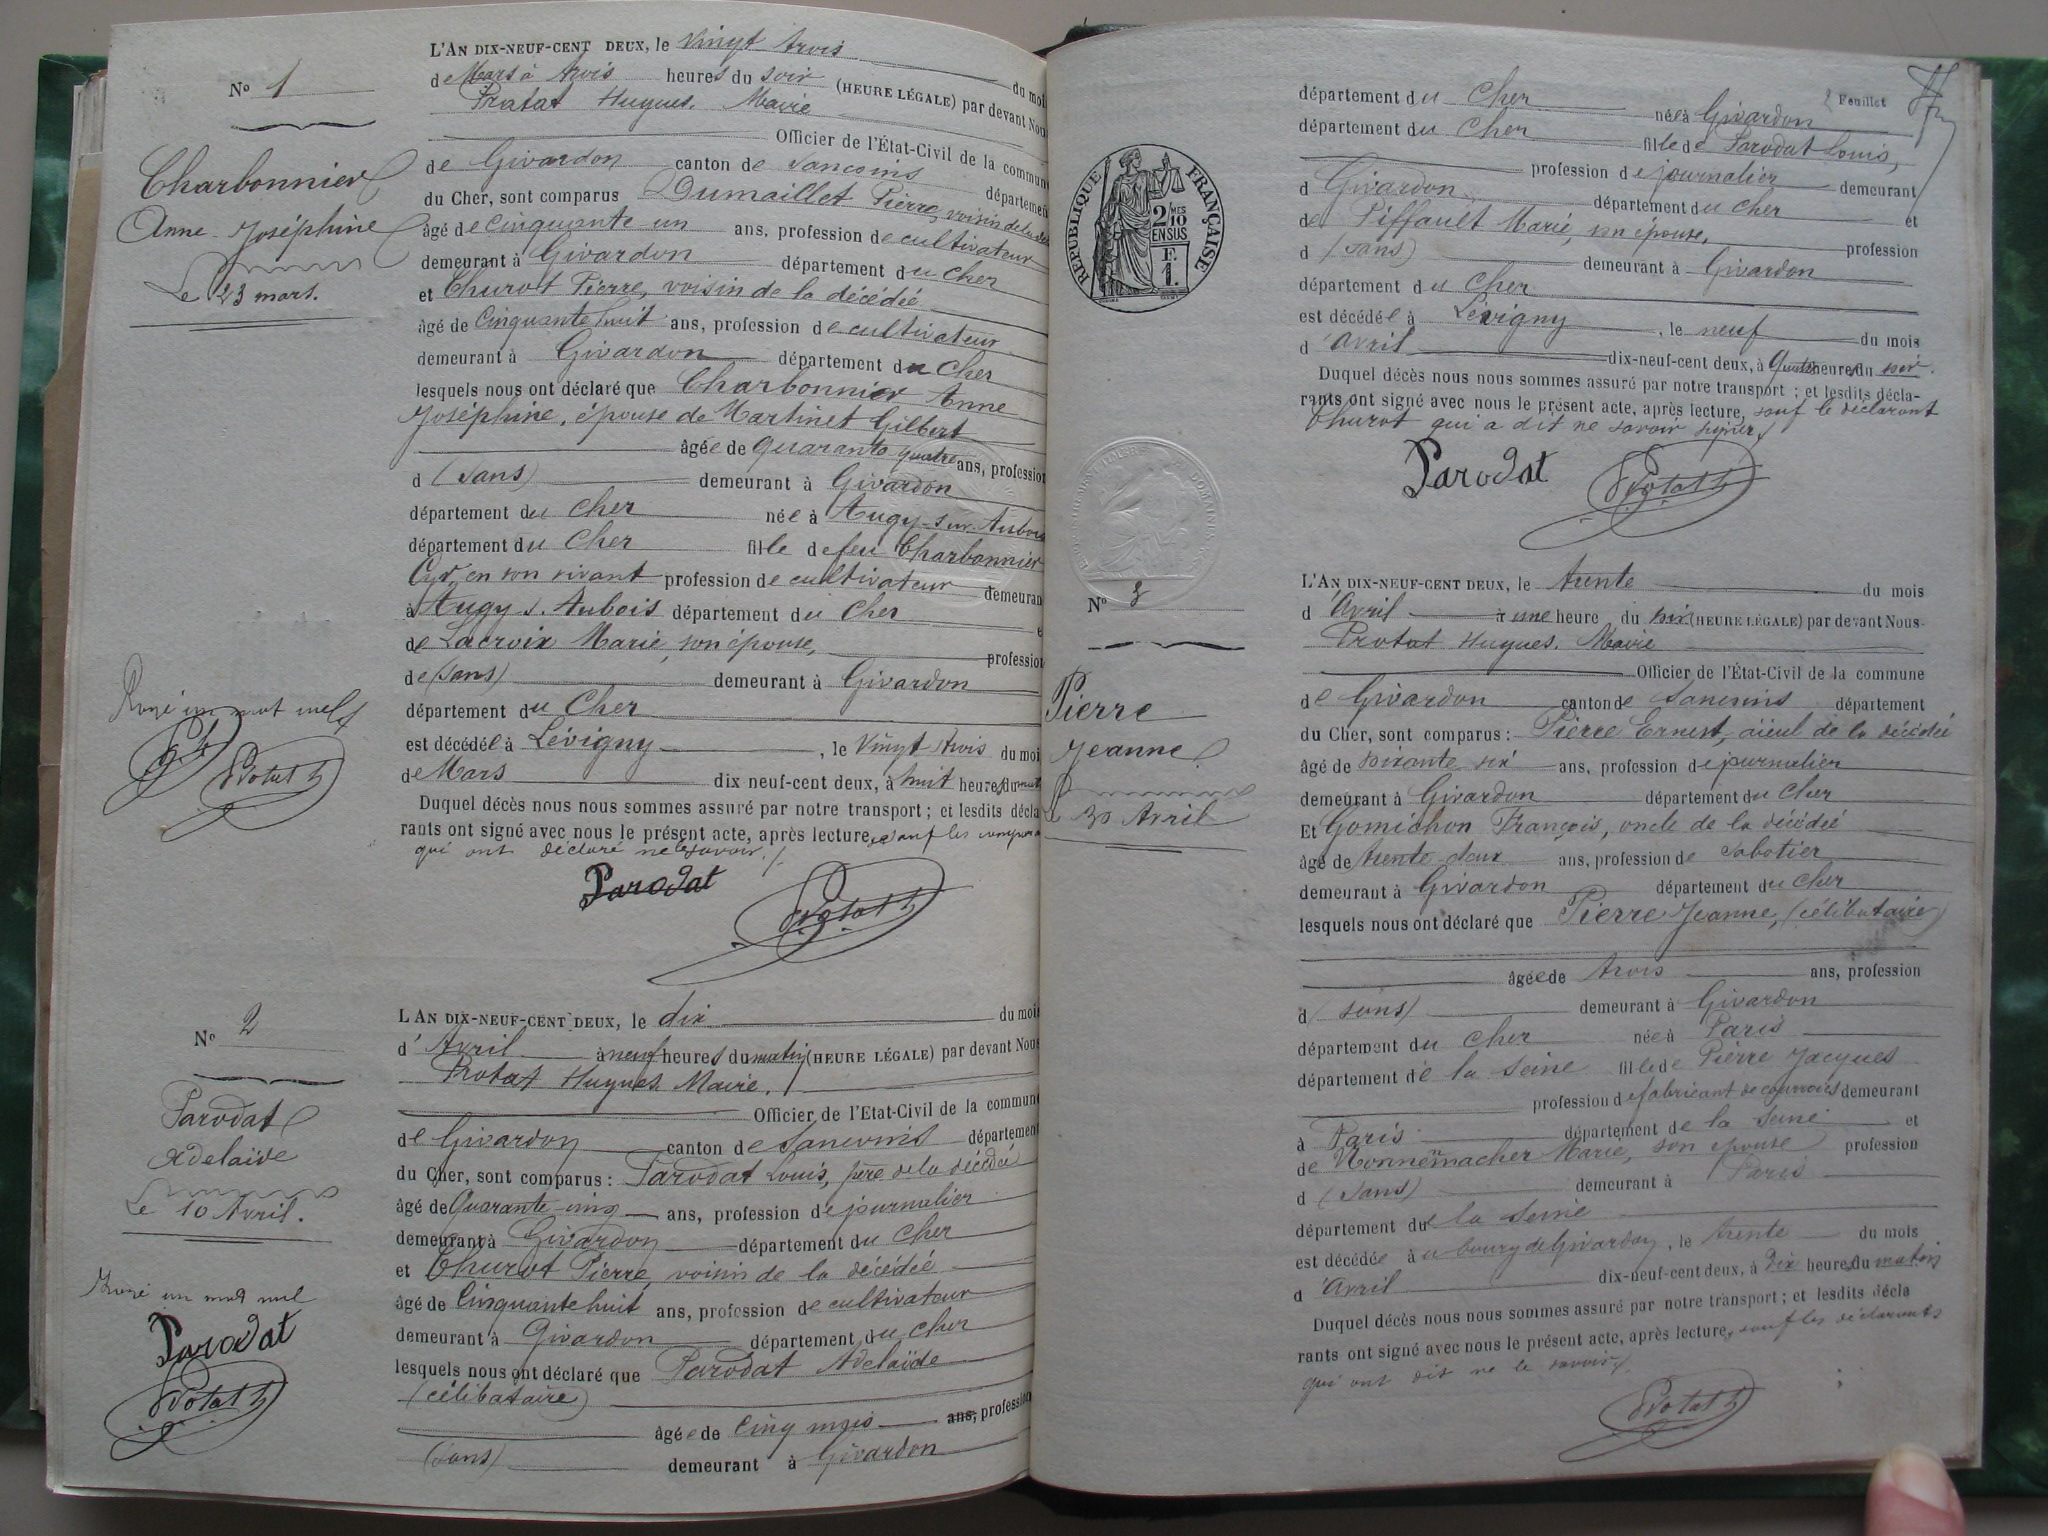 N° 1
Charbonnier
Anne Joséphine
Le 23 mars.
L'AN DIX-NEUF-CENT DEUX, le vingt trois du mois
de Mars à trois heures du soir (HEURE LÉGALE) par devant Nous
Protat Hugues. Maire
Officier de l'État-Civil de la commune
de Givardon canton de Sancoins départemen
du Cher, sont comparus Dumaillet Pierre, voisin de la
âgé de cinquante un ans, profession de cultivateur
demeurant à Givardon département du Cher
et Churot Pierre, voisin de la décédée
âgé de Cinquante huit ans, profession de cultivateur
demeurant à Givardon département du Cher
lesquels nous ont déclaré que Charbonnier Anne
Joséphine, épouse de Martinet Gilbert
âgée de quarante quatre ans, profession
d (sans) demeurant à Givardon
département du Cher née à Augy-sur-Aubois
département du Cher fille de feu Charbonnier
Cyr, en son vivant profession de cultivateur demeuran
à Augy s. Aubois département du Cher
de Lacroix Marie, son épouse, profession
de (sans) demeurant à Givardon
département du Cher
est décédée à Lévigny, le vingt trois du moi
de Mars dix neuf-cent deux, à huit heures du mat
Duquel décès nous nous sommes assuré par notre transport ; et lesdits décla
rants ont signé avec nous le présent acte, après lecture, sauf les
qui ont déclaré ne le savoir.
Rayé un mot nul
Parodat
Protat h
Protat h
N° 2
Parodat
Adelaïde
Le 10 Avril.
L'AN DIX-NEUF-CENT DEUX, le dix du mois
d'Avril à neuf heures du matin (HEURE LÉGALE) par devant Nous
Protat Hugues Maire.
Officier de l'Etat-Civil de la commune
de Givardon canton de Sancoins département
du Cher, sont comparus : Parodat Louis, père de la décédée
âgé de Quarante-cinq ans, profession de journalier
demeurant à Givardon département du Cher
et Churot Pierre, voisin de la décédée
âgé de Cinquante huit ans, profession de cultivateur
demeurant à Givardon département du Cher
lesquels nous ont déclaré que Parodat Adelaïde
(célibataire)
âgée de cinq mois ans, profession
(sans) demeurant à Givardon
Rayé un mot nul
Parodat
Protat h
2 Feuillet
département du Cher née à Givardon
département du Cher fille de Parodat Louis,
profession de journalier demeurant
d Givardon département du Cher et
de Piffault Marie, son épouse, profession
d (sans) demeurant à Givardon
département du Cher
est décédée à Lévigny, le neuf du mois
d'Avril dix-neuf-cent deux, à Quatre heures du soir.
Duquel décès nous nous sommes assuré par notre transport ; et lesdits décla-
rants ont signé avec nous le présent acte, après lecture, sauf le déclarant
Churot qui a dit ne savoir signer
Parodat
Protat h
RÉPUBLIQUE FRANÇAISE
2/10 MES
EN SUS
F.
1.
N° 3
Pierre
Jeanne
Le 30 Avril
L'AN DIX-NEUF-CENT DEUX, le trente du mois
d'Avril à une heure du soir (HEURE LÉGALE) par devant Nous
Protat Hugues. Maire
Officier de l'État-Civil de la commune
de Givardon canton de Sancoins département
du Cher, sont comparus : Pierre Ernest, aïeul de la décédée
âgé de soixante six ans, profession de journalier
demeurant à Givardon département du Cher
Et Gomichon François, oncle de la décédée
âgé de trente deux ans, profession de Sabotier
demeurant à Givardon département du Cher
lesquels nous ont déclaré que Pierre Jeanne, (célibataire)
âgée de trois ans, profession
d (sans) demeurant à Givardon
département du Cher née à Paris
département de la Seine fille de Pierre Jacques
profession de fabricant de courroies demeurant
à Paris département de la Seine et
de Nonnenmacher Marie, son épouse profession
d (sans) demeurant à Paris
département de la Seine
est décédée au bourg de Givardon, le trente du mois
d'Avril dix-neuf-cent deux, à dix heures du matin
Duquel décès nous nous sommes assuré par notre transport ; et lesdits décla
rants ont signé avec nous le présent acte, après lecture, sauf les déclarants
qui ont dit ne le savoir.
Protat h